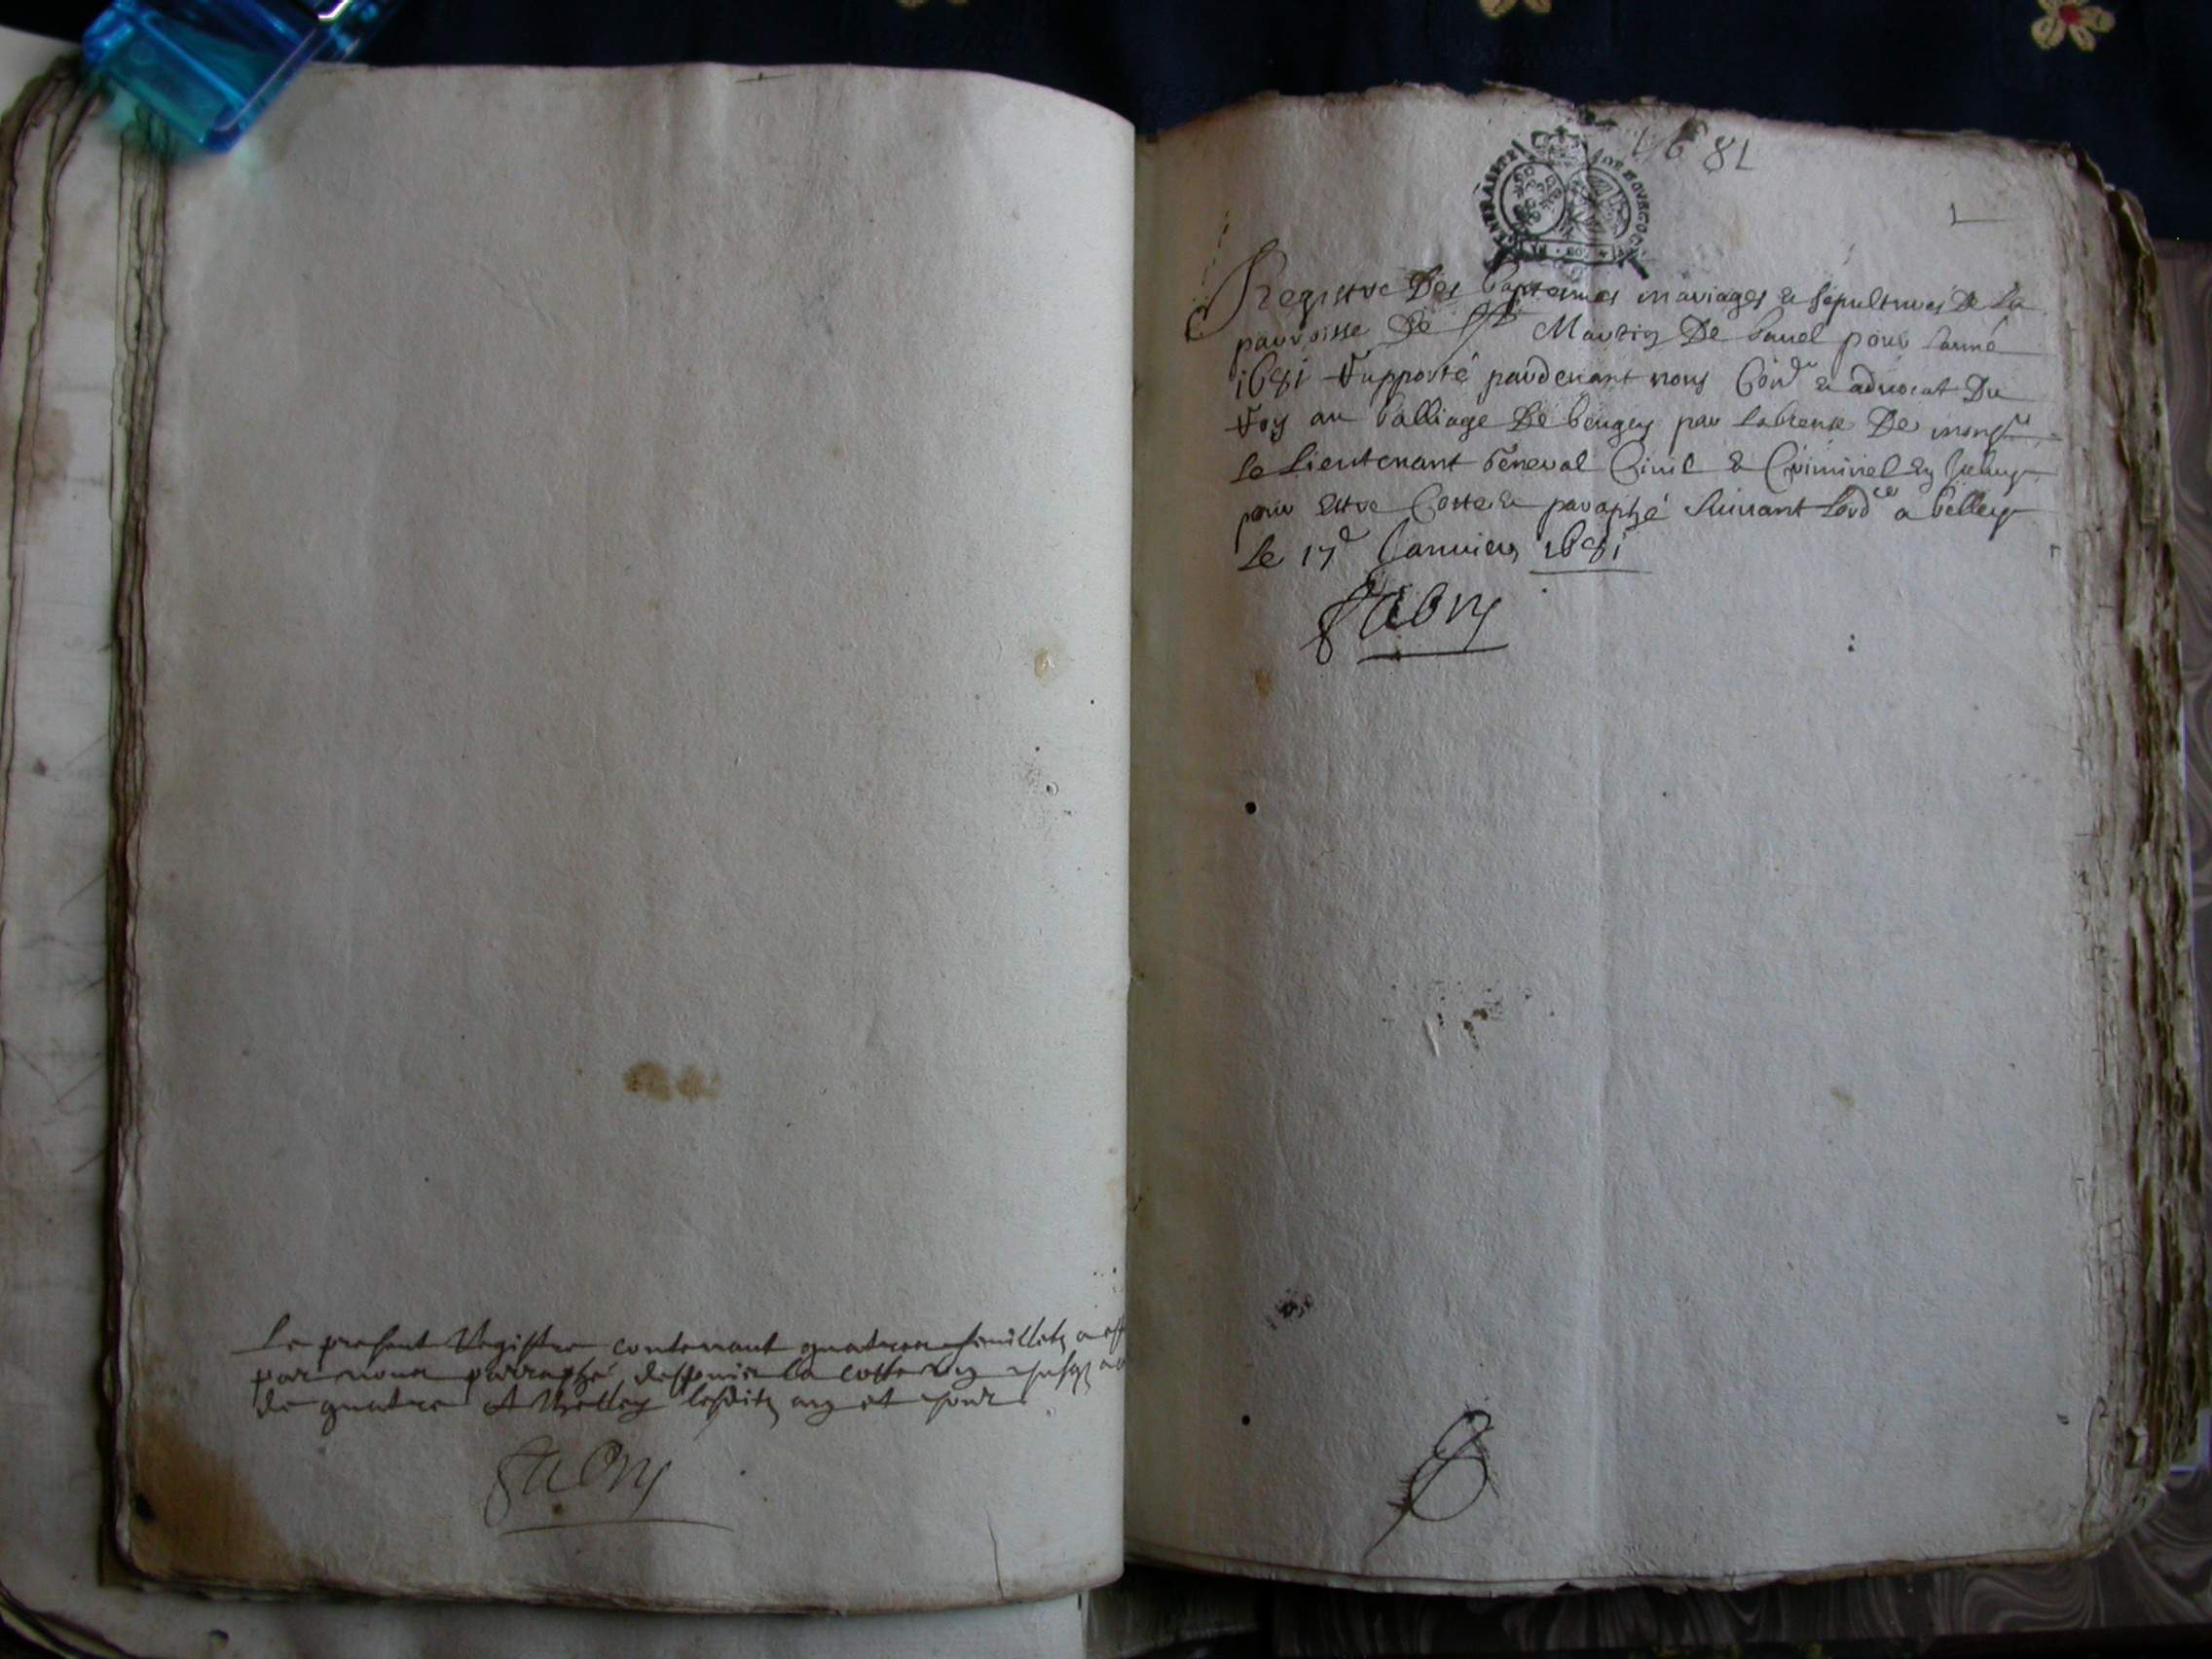 Le present Registre contenant quatre feuillets a est
par nous parraphé despuis la cotte ung jusqs a
de quatre A Belley lesdits an et jour
Fabry
1681
1
GENERALITE DE BOURGOGNE
Registre Des baptesmes mariages & sepultures De La
parroisse De St Martin De bauel pour Lanné
1681 Rapporté pardevant nous Con.r & advocat Du
Roy au balliage De beugey par Labsence De mongr
Le Lieutenant General Civil & Criminel En
pour Estre Cotté & paraphé Suivant Lord.ce a belley
Le 17e Janvier 1681
Fabry